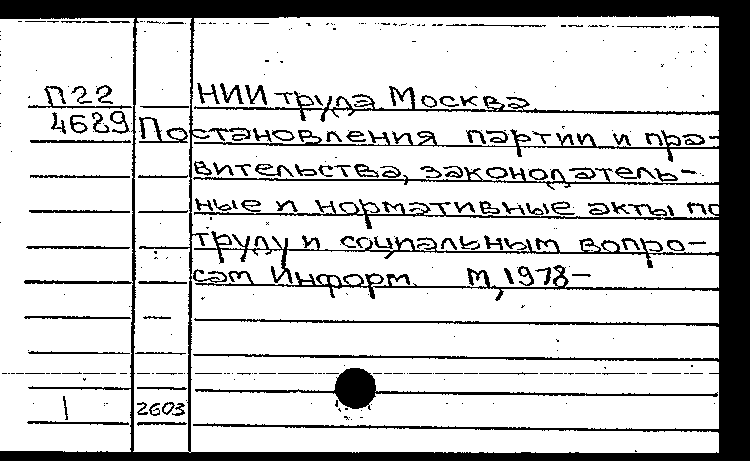 П22 НИИ труда. Москва.
4689 Постановления партии и пра-
вительства, законодатель-
ные и нормативные акты по
труду и социальным вопро-
сам Информ. М, 1978-
1 2603